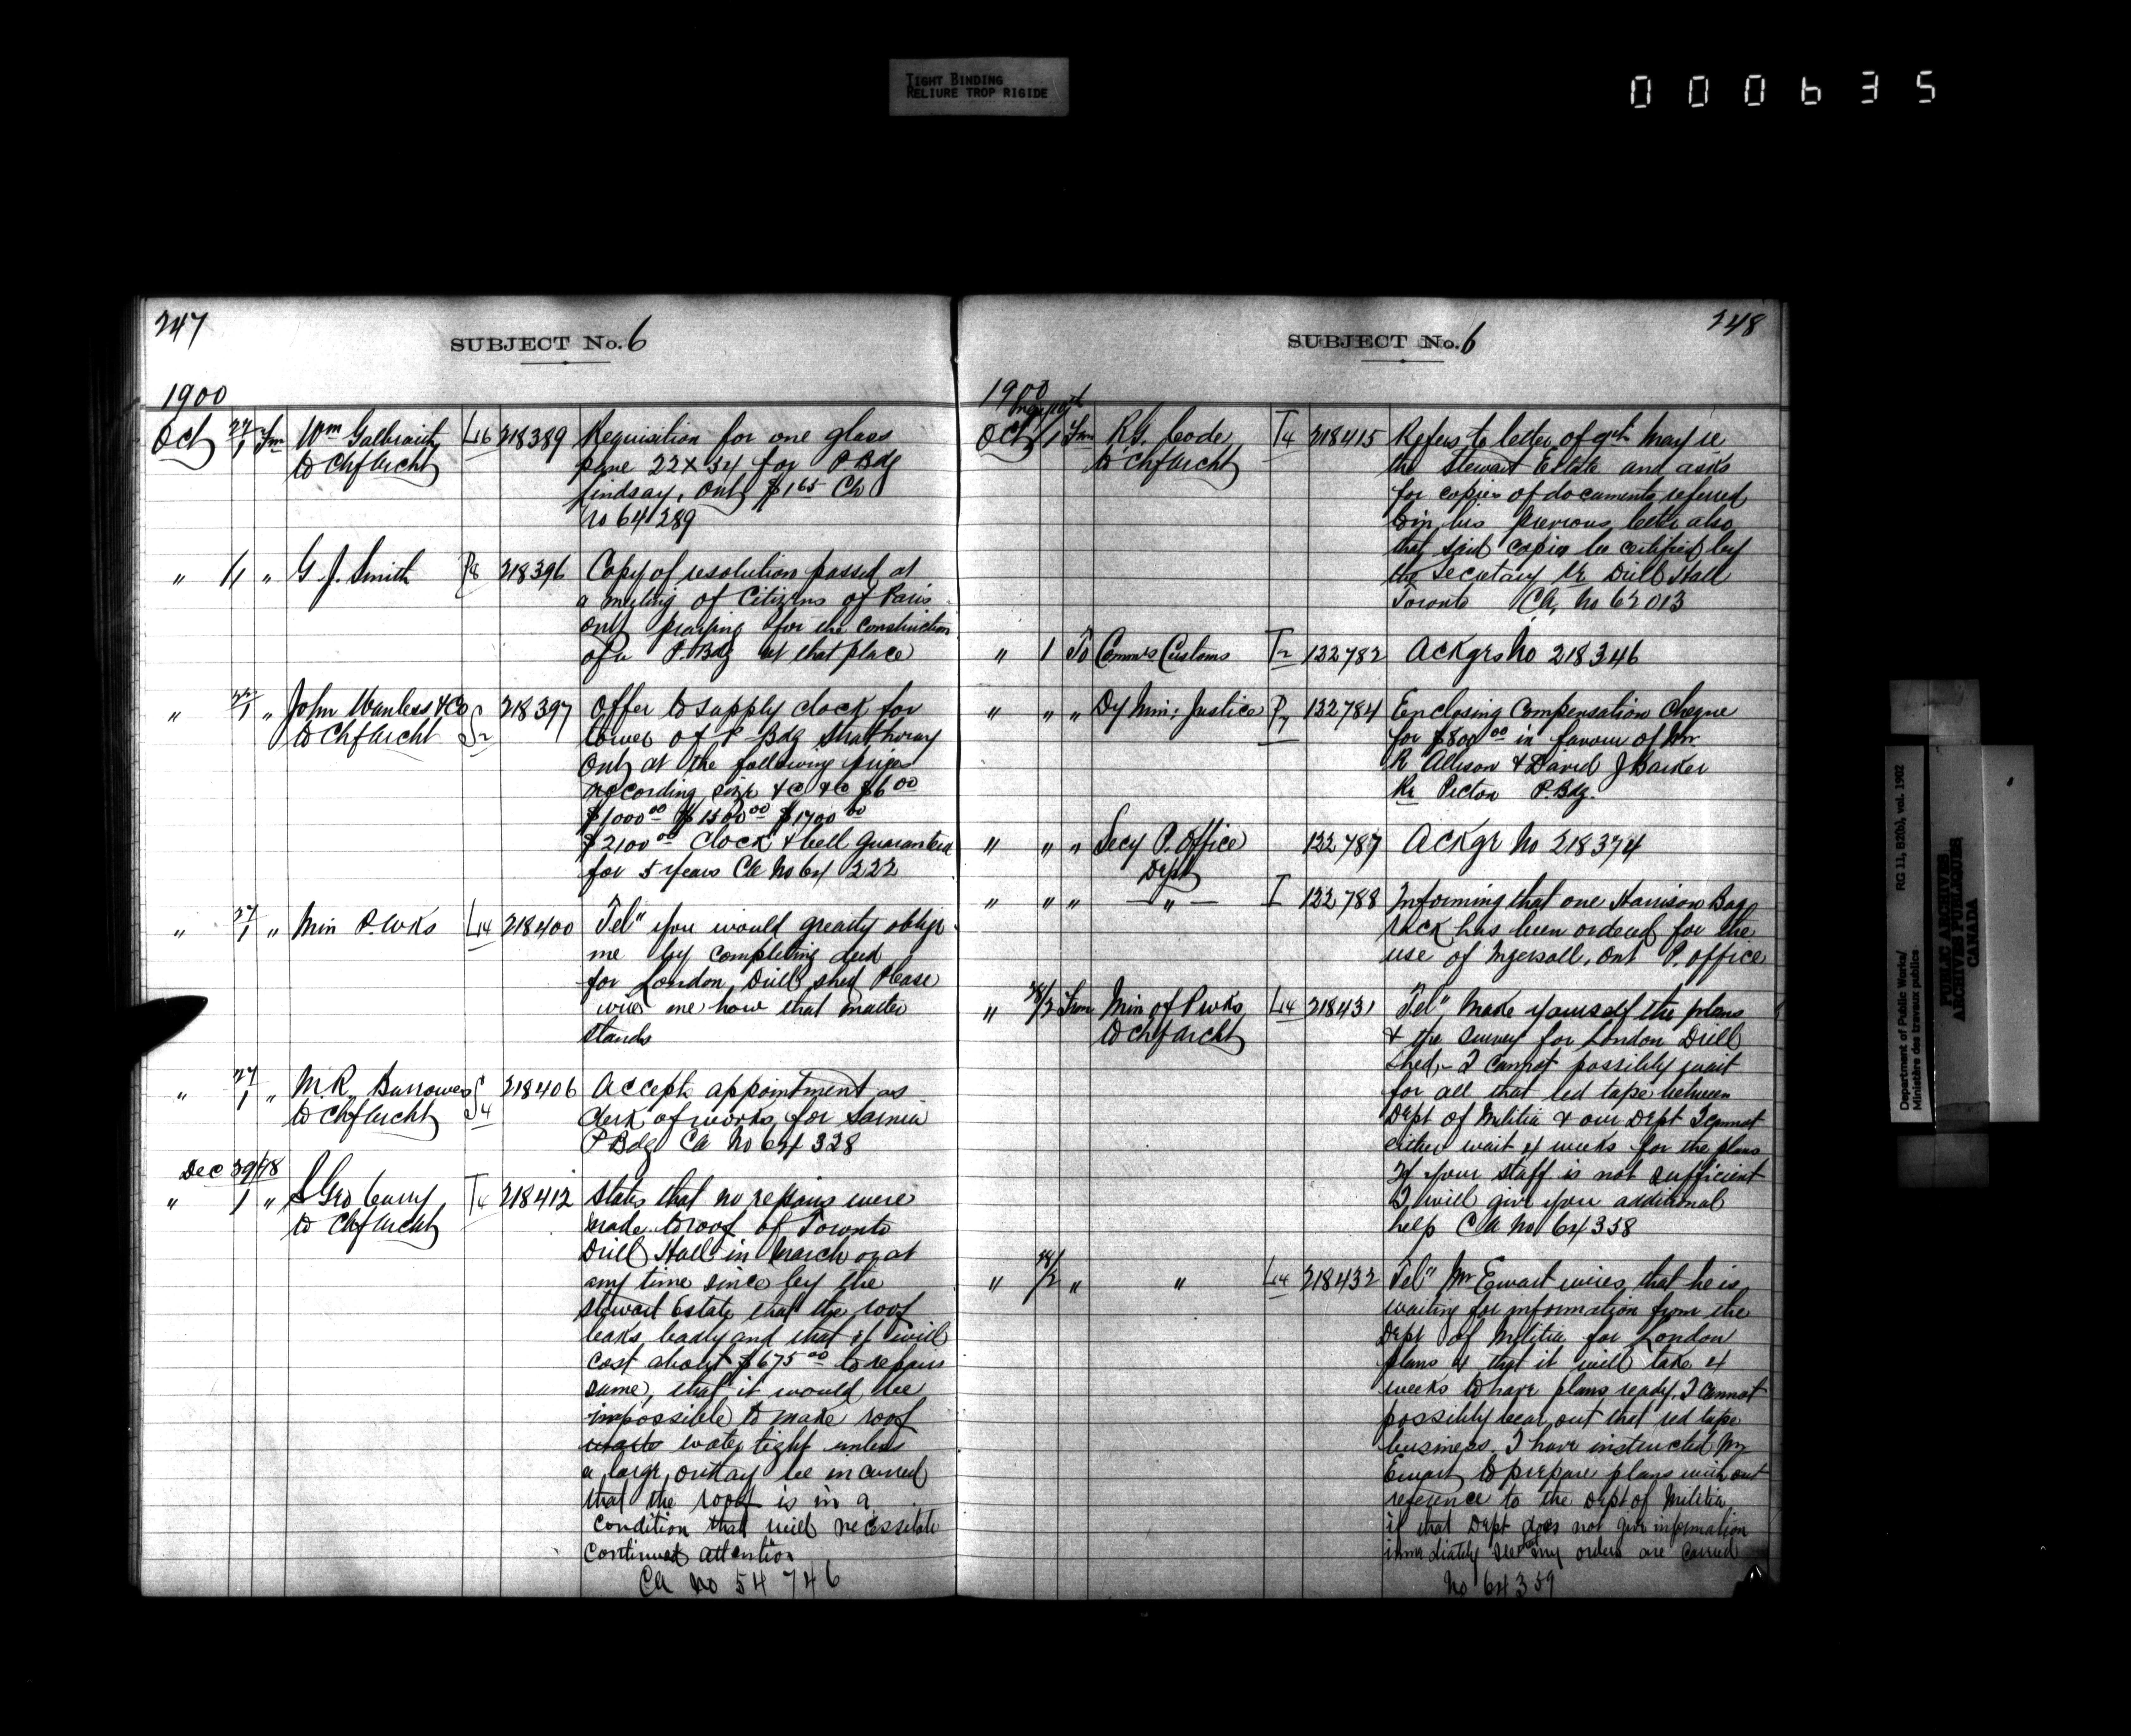 TIGHT BINDING
RELIURE TROP RIGIDE
000635
247
SUBJECT No. 6
1900
Oct 27/1 Fm Wm Galbraith L16 218389 Requisition for one glass
to Chf Archt pane 22 x 34 for P Bdg
Lindsay, Ont $1.65 CA
No 64289
" 1/1 " G. J. Smith P8 218396 Copy of resolution passed at
a meeting of Citizens of Paris
Ont praying for the construction
of a P. Bdg at that place
" 22/1 " John Wanless & Co S2 218397 Offer to supply clock for
to Chf Archt tower of P Bdg Strathroy
Ont at the following prices
according size &c &c
$1000 00 $1500 00 $1700 00
$2100 00 clock & bell guaranteed
for 5 years CA No 64 222
" 27/1 " Min P. Wks L14 218400 Tel" you would greatly oblige
me by completing deed
for London Drill shed Please
wire me how that matter
stands
" 27/1 " M. R. Burrowes S4 218406 Accepts appointment as
to Chf Archt clerk of works for Sarnia
P Bdg CA No 64 328
Dec 39/98
" 1 " S Geo Curry T4 218412 States that no repairs were
to Chf Archt made to roof of Toronto
Drill Hall in March or at
any time since by the
Stewart Estate that the roof
leaks badly and that it will
cost about $675 00 to repair
same, that it would be
impossible to make roof
water tight unless
a large outlay be incurred
that the roof is in a
condition that will necessitate
continued attention
CA No 54 746
248
SUBJECT No. 6
1900
Oct 1 Fm R. G. Code T4 218415 Refers to letter of 9th May re
to Chf Archt the Stewart Estate and asks
for copies of documents referred
to in his previous letter also
that said copies be certified by
the Secretary re Drill Hall
Toronto CA, No 62013
" 1 To Comm's Customs T2 122782 Ackgrs No 218346
" " " Dy Min: Justice P7 122784 Enclosing Compensation Cheque
for $800 00 in favour of Mr
R Allison & David J Barker
Re Picton P. Bdg.
" " " Secy P. Office 122787 Ackgr No 218374
Dept
" " " — " — I 122788 Informing that one Harrison Bag
rack has been ordered for the
use of Ingersoll, Ont P. Office
" 28/2 From Min of P wks L14 218431 Tel", Make yourself the plans
to Chf Archt & the survey for London Drill
shed, - I cannot possibly wait
for all that red tape between
Dept of Militia & our Dept I cannot
either wait 4 weeks for the plans
If your staff is not sufficient
I will give you additional
help CA No 64358
" 28/2 " " L14 218432 Tel" Mr Ewart wires that he is
waiting for information from the
Dept of Militia for London
plans & that it will take 4
weeks to have plans ready. I cannot
possibly bear out that red tape
business. I have instructed Mr
Ewart to prepare plans without
reference to the Dept of Militia
if that Dept does not give information
immediately see that my orders are carried
No 64359
Department of Public Works/
Ministère des travaux publics
RG 11, B2(b), vol. 1902
PUBLIC ARCHIVES
ARCHIVES PUBLIQUES
CANADA